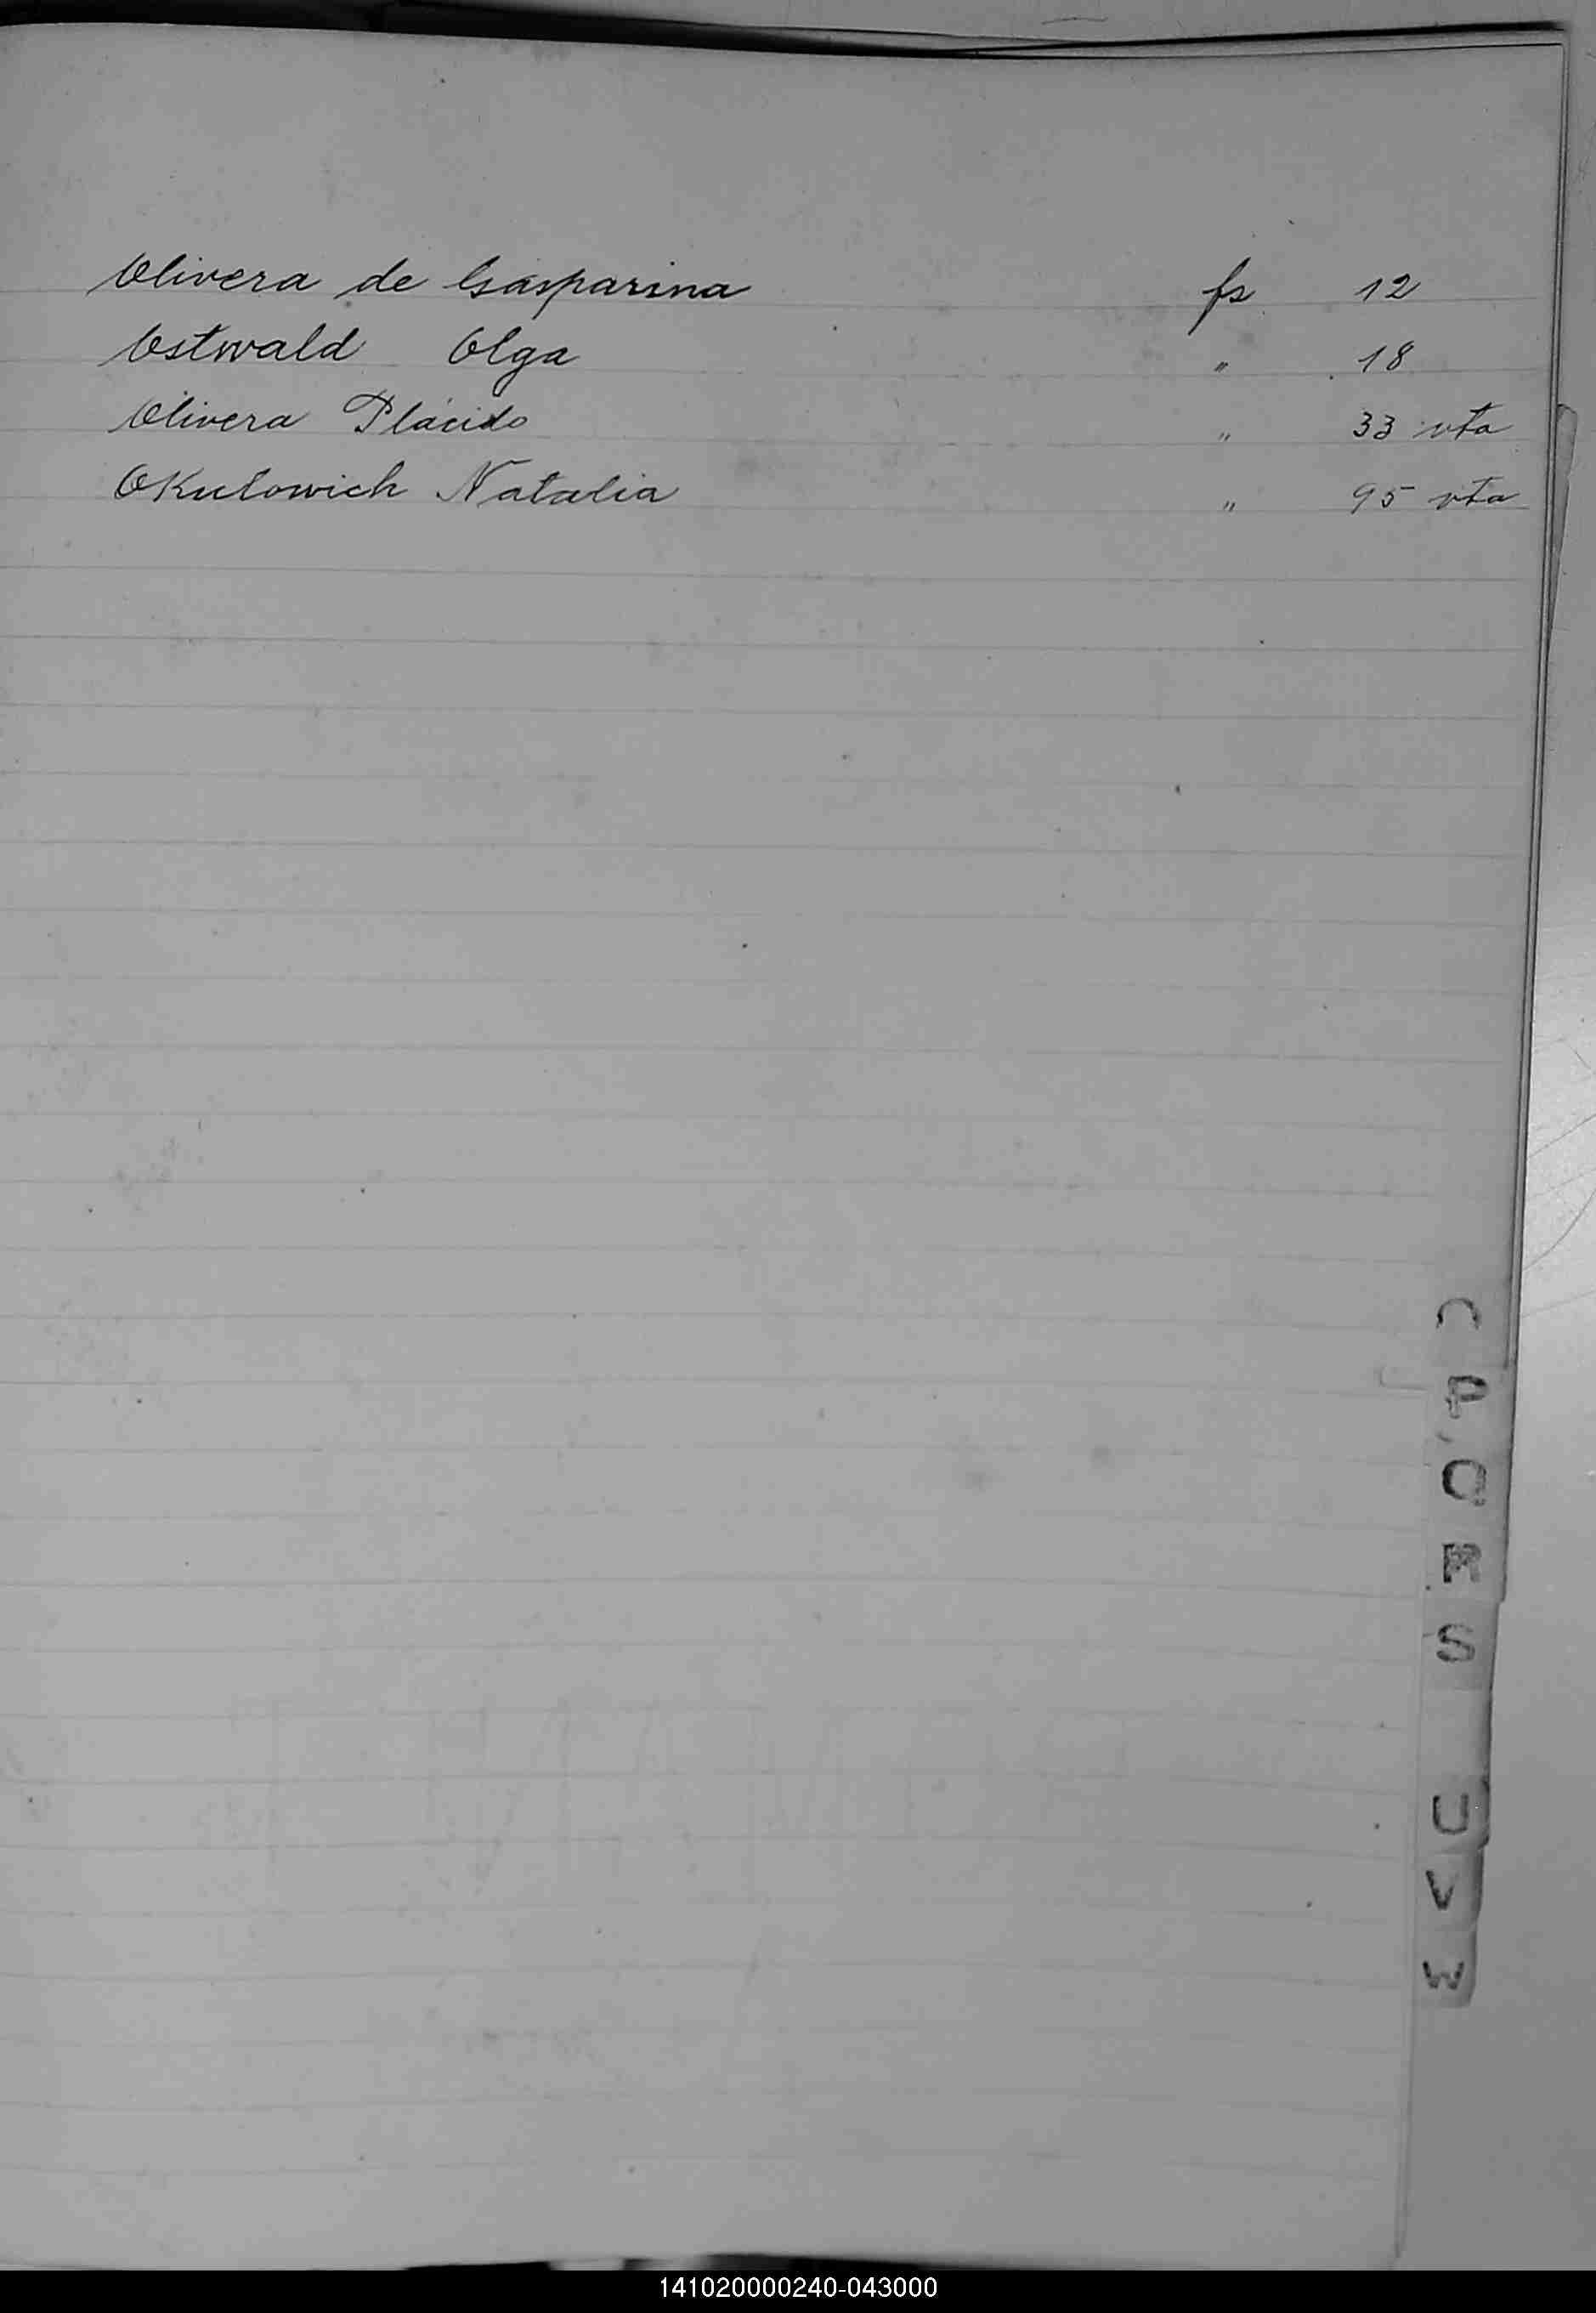 Olivera de Gásparina fs 12
Ostwald Olga " 18
Olivera Plácido " 33 vta
Okulowich Natalia " 95 vta
P
Q
R
S
U
V
W
141020000240-043000